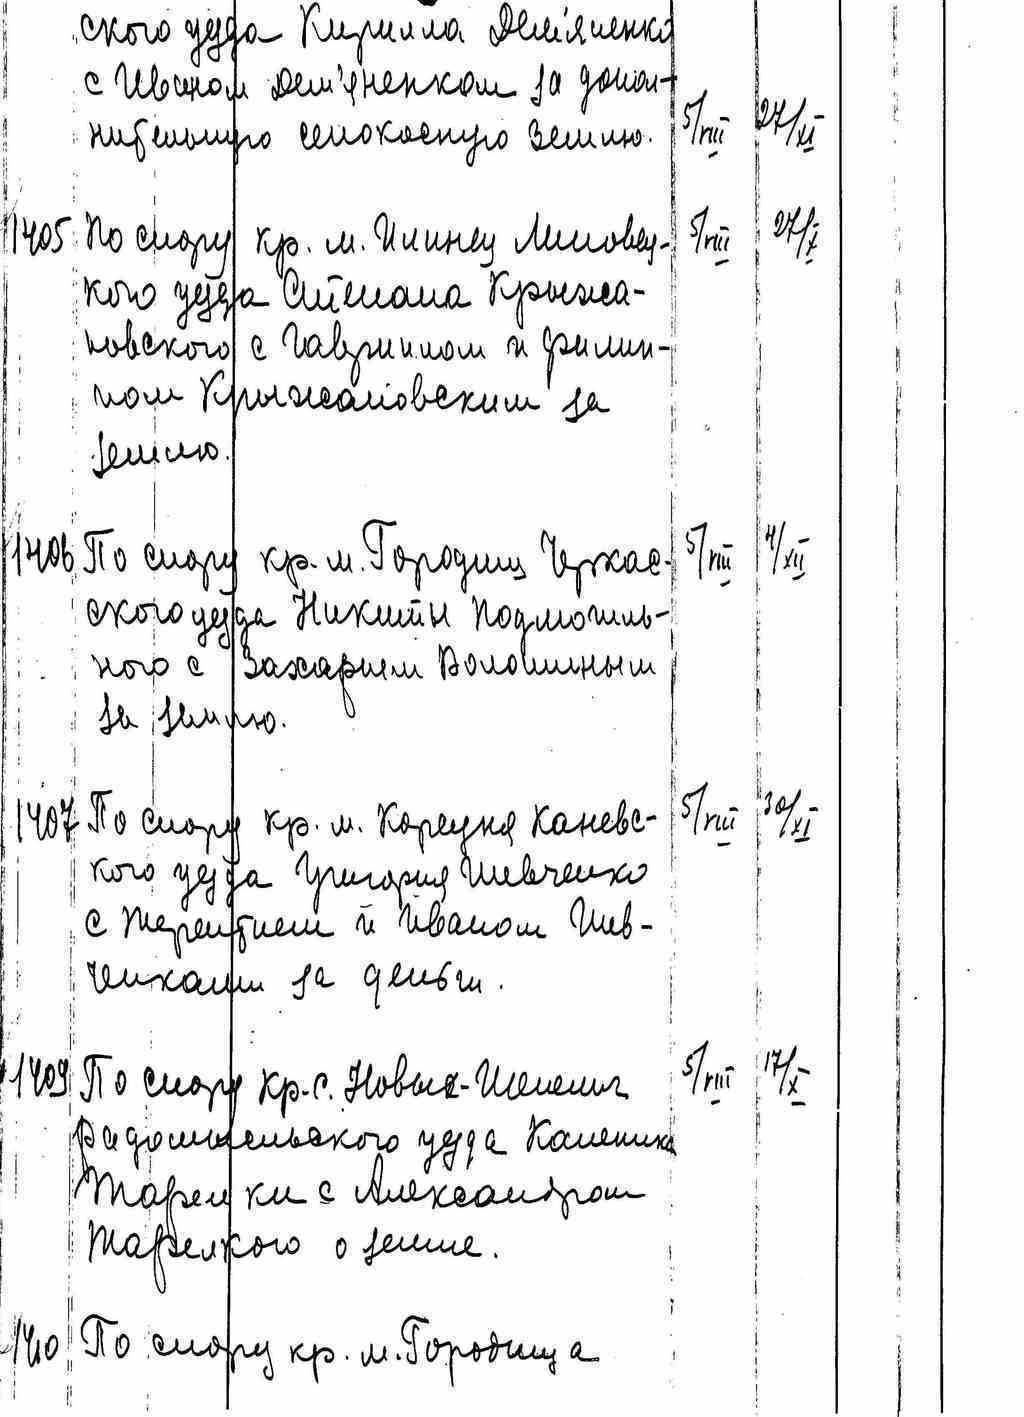 ского уезда Кирилла Дем'яненка
с Иваном Дем'яненком за допол-
нительную сенокосную землю. 5/VIII 27/XI
1405 По спору кр. м. Илинец Липовец- 5/VIII 27/X
кого уезда Степана Крыжа-
новского с Гавриилом и Филип-
пом Крыжановским за
землю.
1406 По спору кр. м. Городищ Черкас- 5/VIII 4/XII
ского уезда Никиты Подмогиль-
ного с Захарием Волошиным
за землю.
1407 По спору кр. м. Корсуня Каневс- 5/VIII 30/XI
кого уезда Григория Шевченко
с Терентием и Иваном Шев-
ченками за деньги.
1409 По спору кр. с. Новых-Шепелич 5/VIII 17/X
Радомысльского уезда Каленика
Тарелки с Александром
Тарелкого о земле.
1410 По спору кр. м. Городища